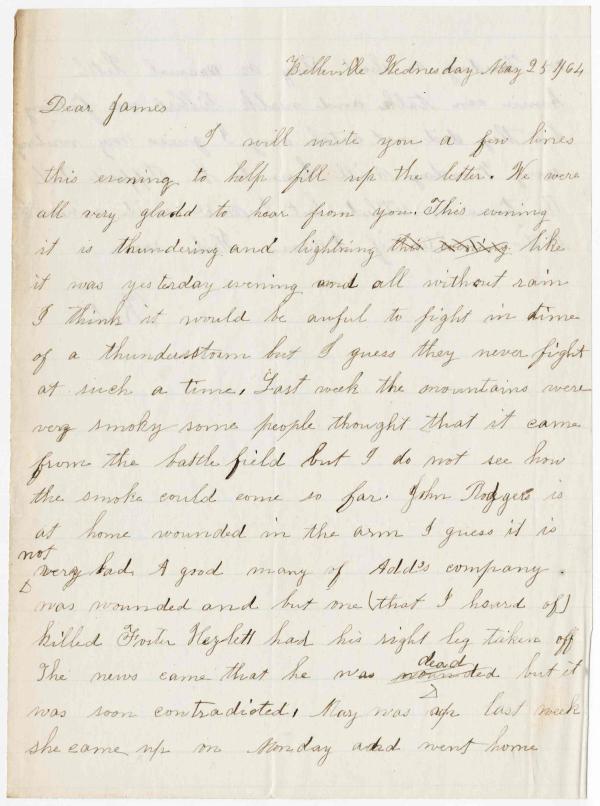 Belleville Wednesday May 25 1864
Dear James
I will write you a few lines
this evening to help fill up the letter. We were
all very gladd to hear from you. This evening
it is thundering and lightning this evening like
it was yesterday evening and all without rain
I think it would be awful to fight in time
of a thunderstorm but I guess they never fight
at such a time, Last week the mountains were
very smoky some people thought that it came
from the battle field but I do not see how
the smoke could come so far. John Rodgers is
at home wounded in the arm I guess it is
not
very bad A good many of Add's company.
was wounded and but one (that I heard of)
killed Foster Hezlett had his right leg taken off
The news came that he was wounded but it
dead
was soon contradicted, Mary was up last week
she came up on Monday and went home